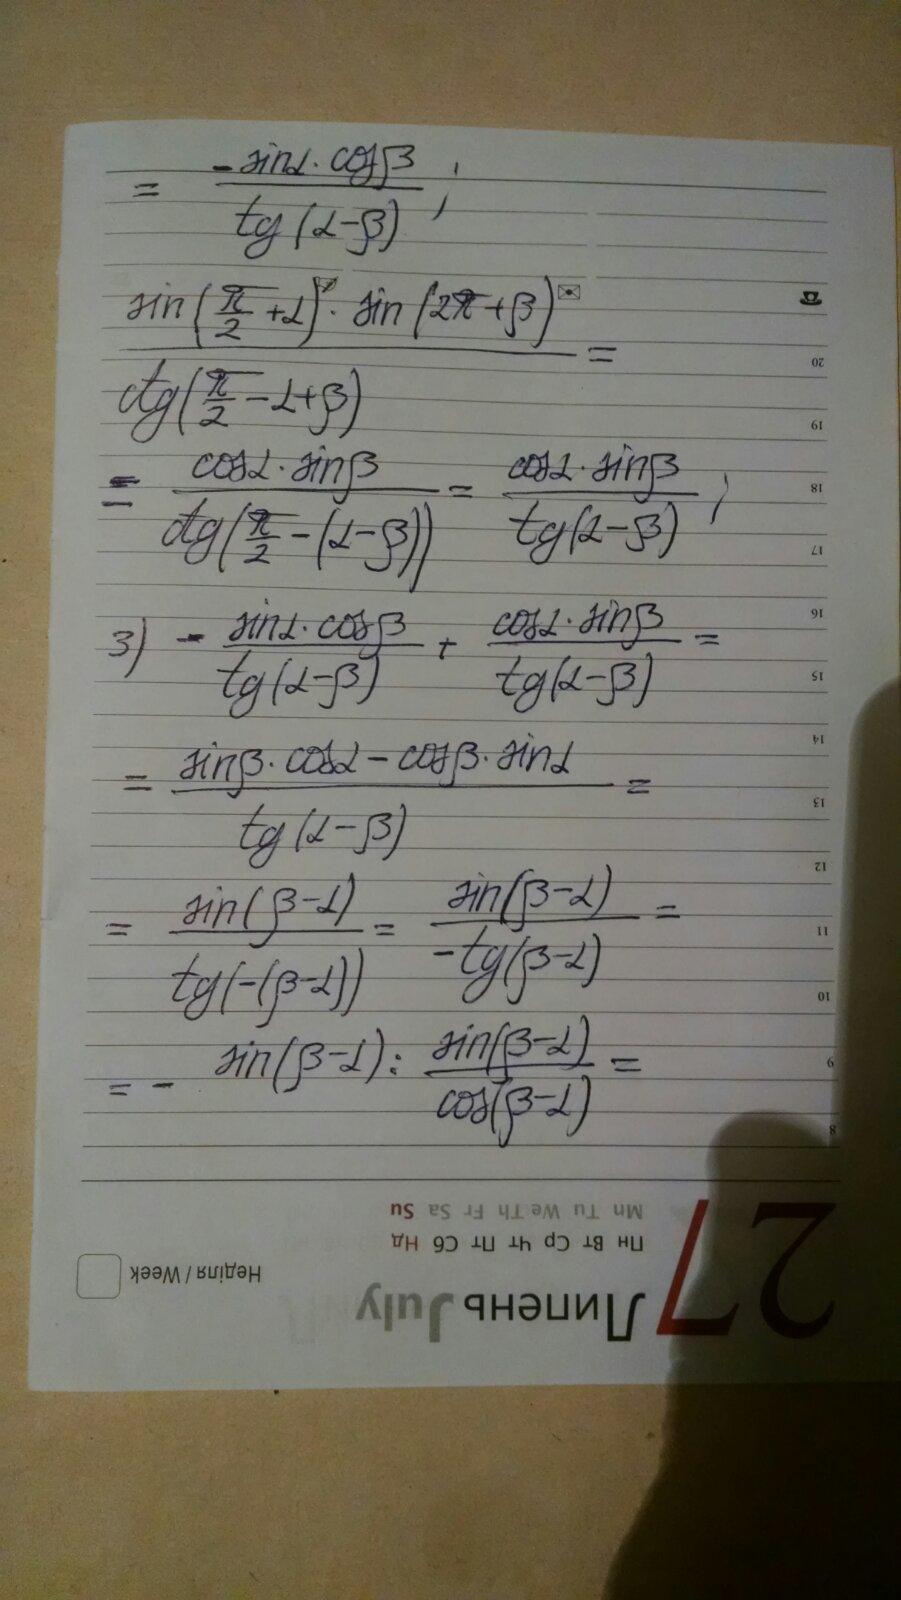 = -sinα·cosβ / tg(α-β) ;
sin(π/2 +α) · sin(2π+β) / ctg(π/2 -α+β) =
= cosα·sinβ / ctg(π/2 -(α-β)) = cosα·sinβ / tg(α-β) ;
3) - sinα·cosβ / tg(α-β) + cosα·sinβ / tg(α-β) =
= sinβ·cosα - cosβ·sinα / tg(α-β) =
= sin(β-α) / tg(-(β-α)) = sin(β-α) / -tg(β-α) =
= - sin(β-α) : sin(β-α) / cos(β-α) =
20
19
18
17
16
15
14
13
12
11
10
9
8
27
Липень July
Неділя / Week
Пн Вт Ср Чт Пт Сб Нд
Mn Tu We Th Fr Sa Su